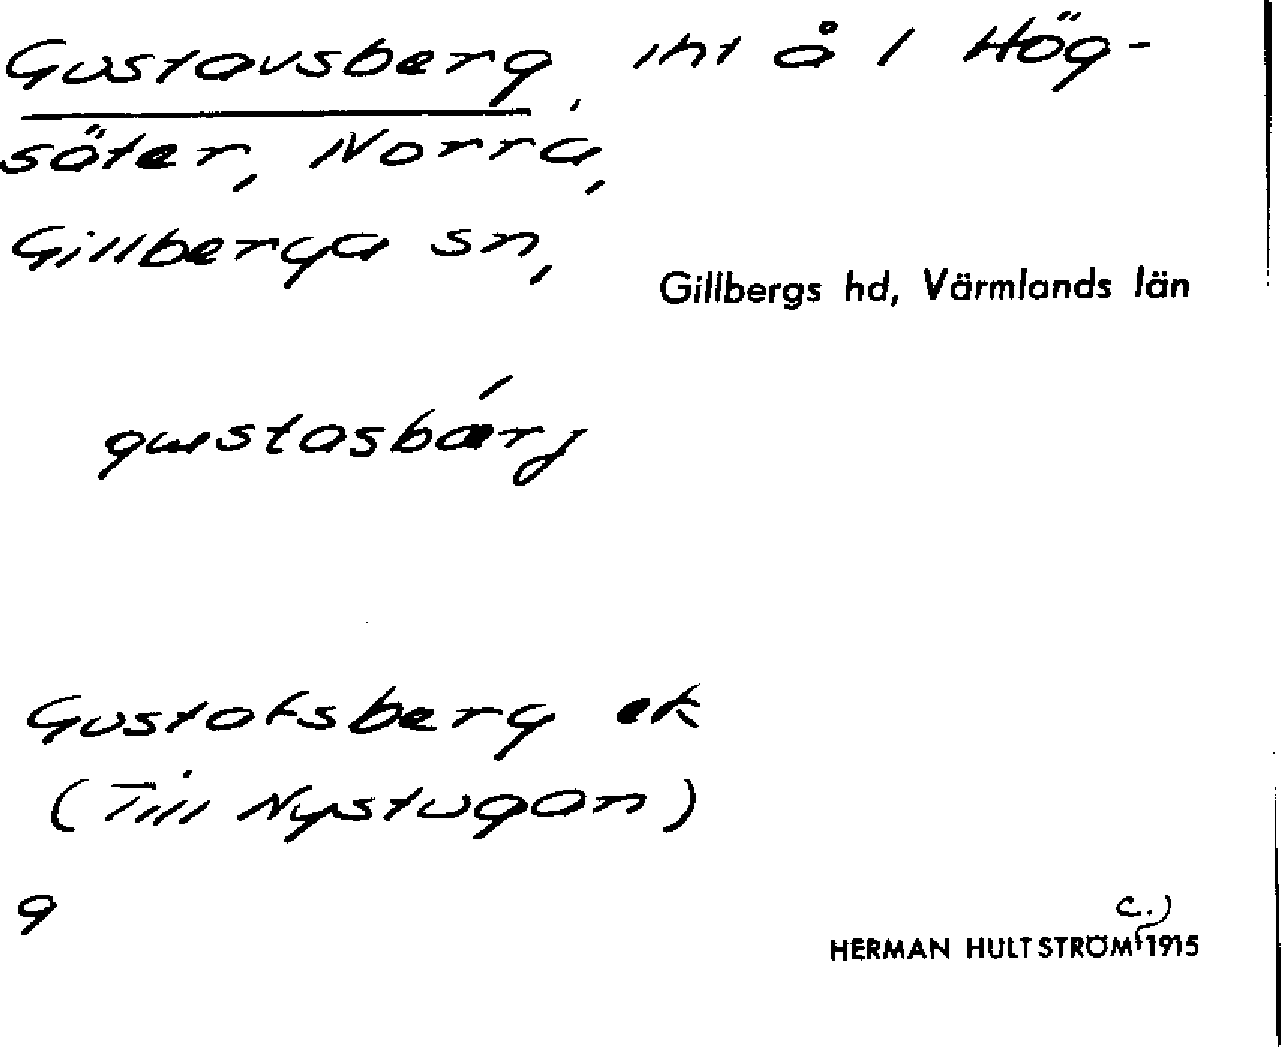 Gustavsberg, iht å 1 Hög-
säter, Norra,
Gillberga sn,
Gillbergs hd, Värmlands län
gustasbærj
Gustofsberg ek
(Till Nystugan)
9
c.)
HERMAN HULTSTRÖM 1915